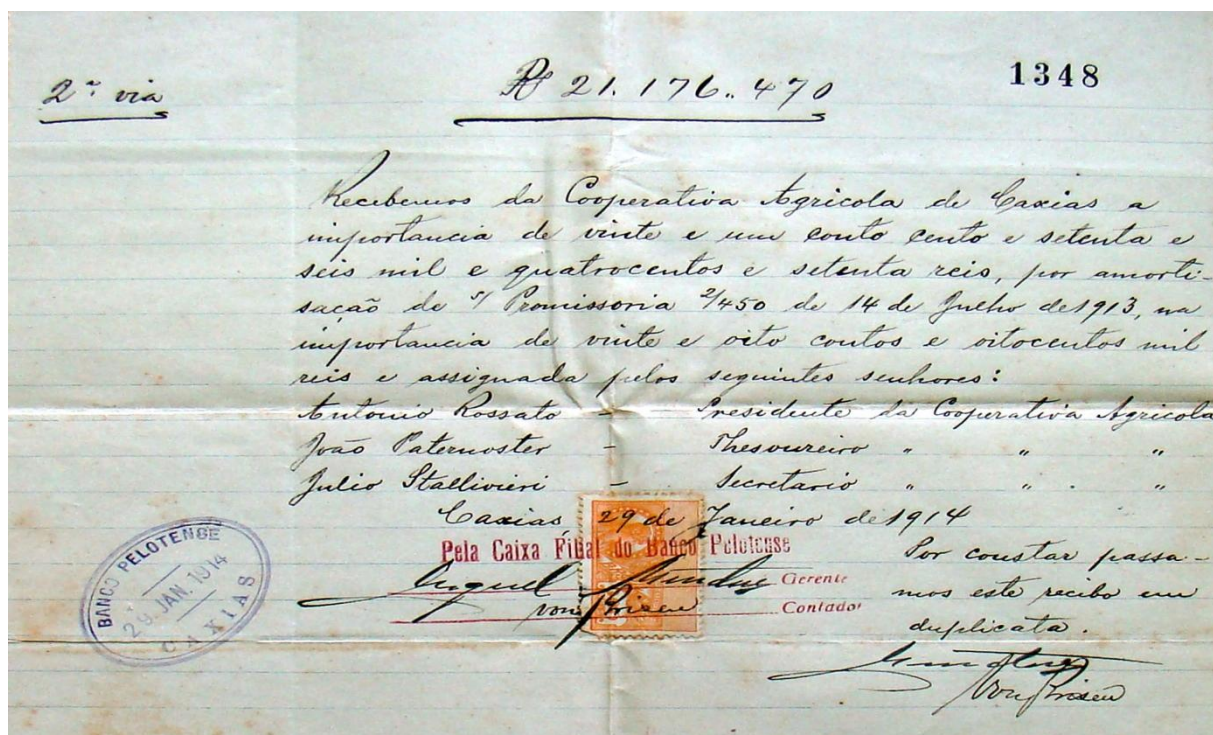 2ª via
Rs 21.176.470
1348
Recebemos da Cooperativa Agricola de Caxias a
importancia de vinte e um conto cento e setenta e
seis mil e quatrocentos e setenta reis, por amorti-
sação de s/ Promissoria 2/450 de 14 de Julho de 1913, na
importancia de vinte e oito contos e oitocentos mil
reis e assignada pelos seguintes senhores:
Antonio Rossato - Presidente da Cooperativa Agricola
João Paternoster - Thesoureiro " " "
Julio Stallivieri - Secretario " " "
Caxias 29 de Janeiro de 1914
Pela Caixa Filial do Banco Pelotense
Gerente
Contador
Por constar passa-
mos este recibo em
duplicata.
BANCO PELOTENSE
29 JAN. 1914
CAXIAS